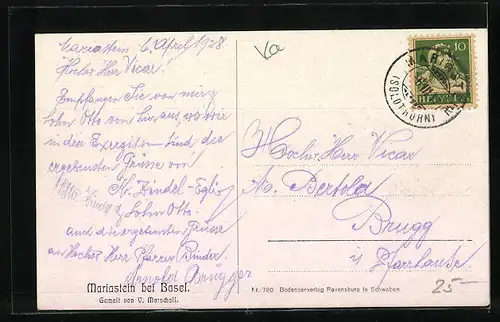 Mariastein 6. April 1928
Hochw. Herr Vicar.
Empfangen Sie von mir u.
Sohn Otto von hier aus, wo wir
in den Exerzitien sind, die
ergebensten Grüsse von
Ar. Zindel-Egli
Sohn Otto.
und die ergebensten Grüsse
an Hochw. Herr Pfarrer Binder.
Arnold Brugger
Mariastein bei Basel.
Gemalt von V. Marschall.
Va
Hochw. Herr Vicar
Bertold
Brugg
Pfarrhause
Nr. 780 Bodenseeverlag Ravensburg in Schwaben
25-
10
HELVETIA
MARIA
(SOLOTHURN)